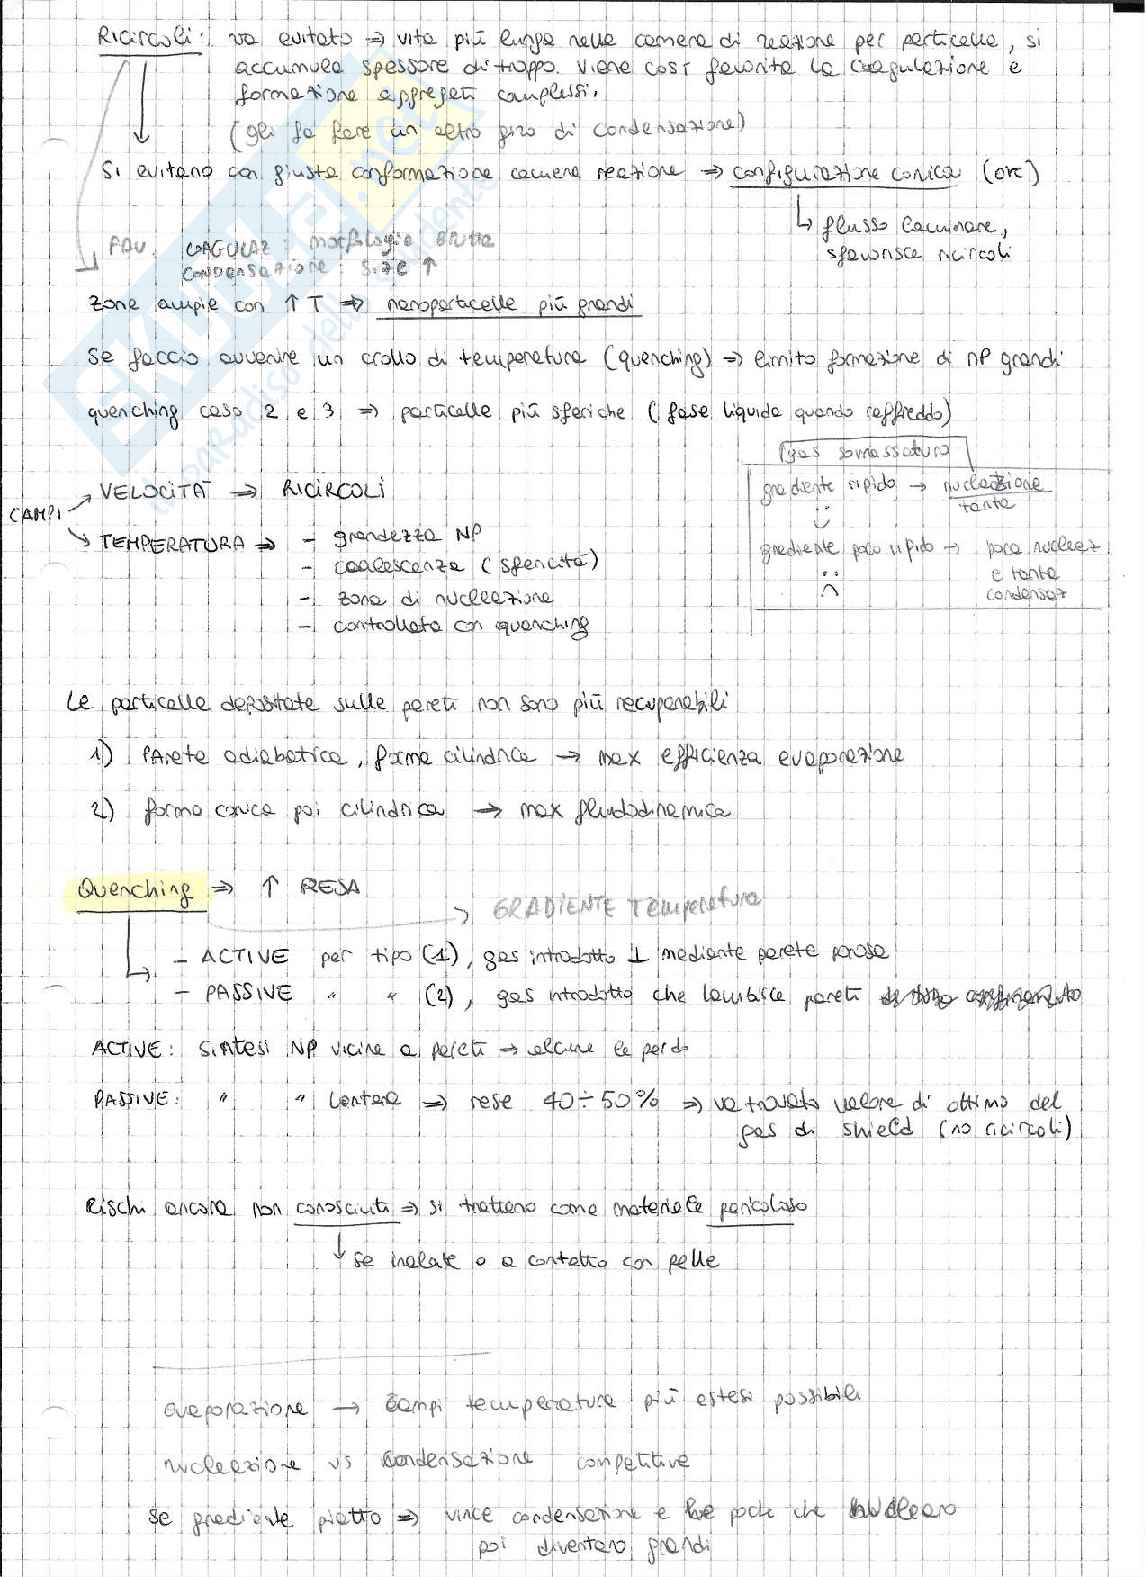 Ricircoli: va evitato ⇒ vita più lunga nella camera di reazione per particelle, si
accumula spessore di troppo. Viene così favorita la coagulazione e
formazione aggregati complessi.
(gli fa fare un altro giro di condensazione)
Si evitano con giusta conformazione camera reazione ⇒ configurazione conica (ok)
↳ flusso laminare,
sfavorisce ricircoli
FAV. COAGULAZ: morfologia brutta
CONDENSAZIONE: size ↑
Zone ampie con ↑ T ⇒ nanoparticelle più grandi
Se faccio avvenire un crollo di temperatura (quenching) ⇒ limito formazione di NP grandi
quenching caso 2 e 3 ⇒ particelle più sferiche (fase liquida quando raffreddo)
gas sovrassaturo
gradiente ripido → nucleazione
tanta
gradiente poco ripido → poca nucleaz
e tanta
condensaz
CAMPI
→ VELOCITÀ ⇒ RICIRCOLI
→ TEMPERATURA ⇒ - grandezza NP
- coalescenza (sfericità)
- zona di nucleazione
- controllata con quenching
Le particelle depositate sulle pareti non sono più recuperabili
1) Parete adiabatica, forma cilindrica → max efficienza evaporazione
2) forma conica poi cilindrica → max fluidodinamica
Quenching ⇒ ↑ RESA
→ GRADIENTE Temperatura
- ACTIVE per tipo (1), gas introdotto ⊥ mediante parete porosa
- PASSIVE " " (2), gas introdotto che lambisce pareti
ACTIVE: sintesi NP vicina a pareti → alcune le perdo
PASSIVE: " " lontana ⇒ rese 40÷50% ⇒ va trovato valore di ottimo del
gas di shield (no ricircoli)
Rischi ancora non conosciuti ⇒ si trattano come materiale pericoloso
↓ se inalate o a contatto con pelle
evaporazione → campi temperatura più estesi possibili
nucleazione vs condensazione competitive
Se gradiente piatto ⇒ vince condensazione e poche che nucleano
poi diventano grandi